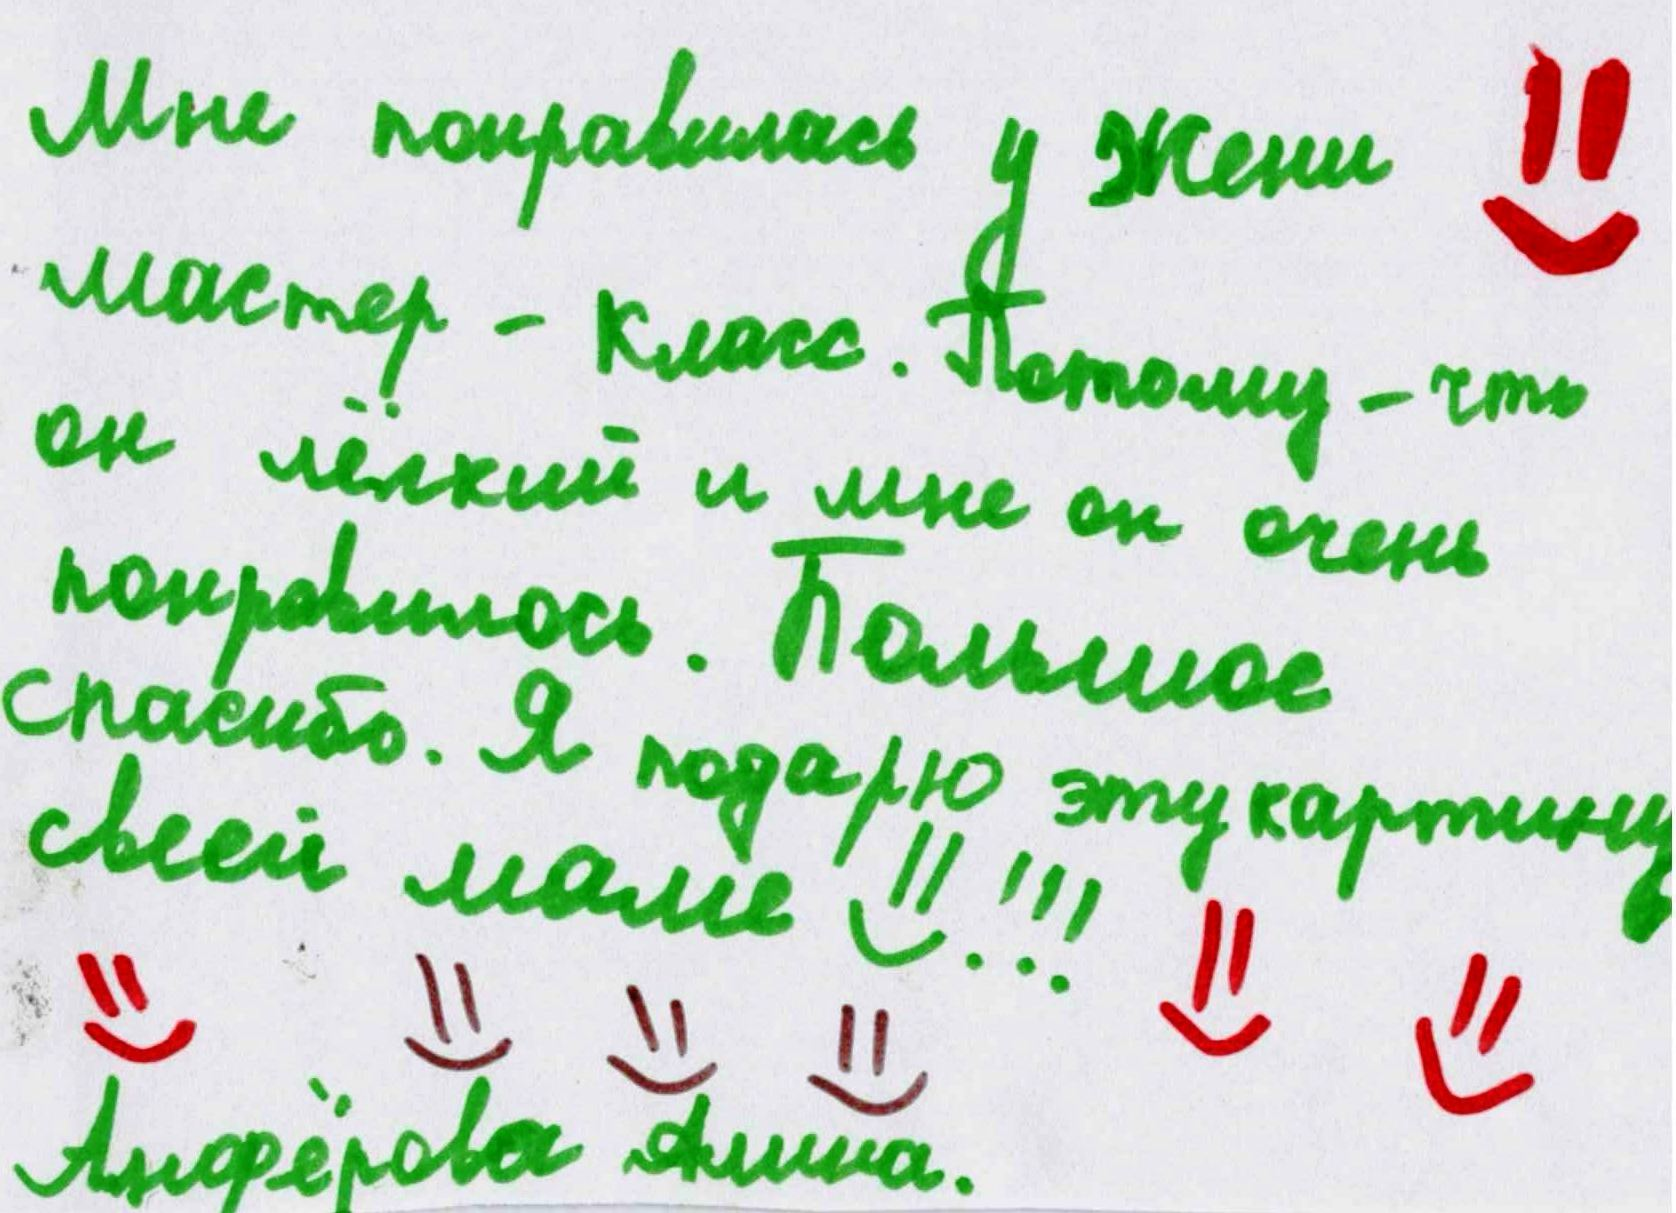 Мне понравилась у Жени
мастер - класс. Потому - что
он лёлкий и мне он очень
понравилось. Большое
спасибо. Я подарю эту картину
своей маме !!!
Анфёрова Алина.